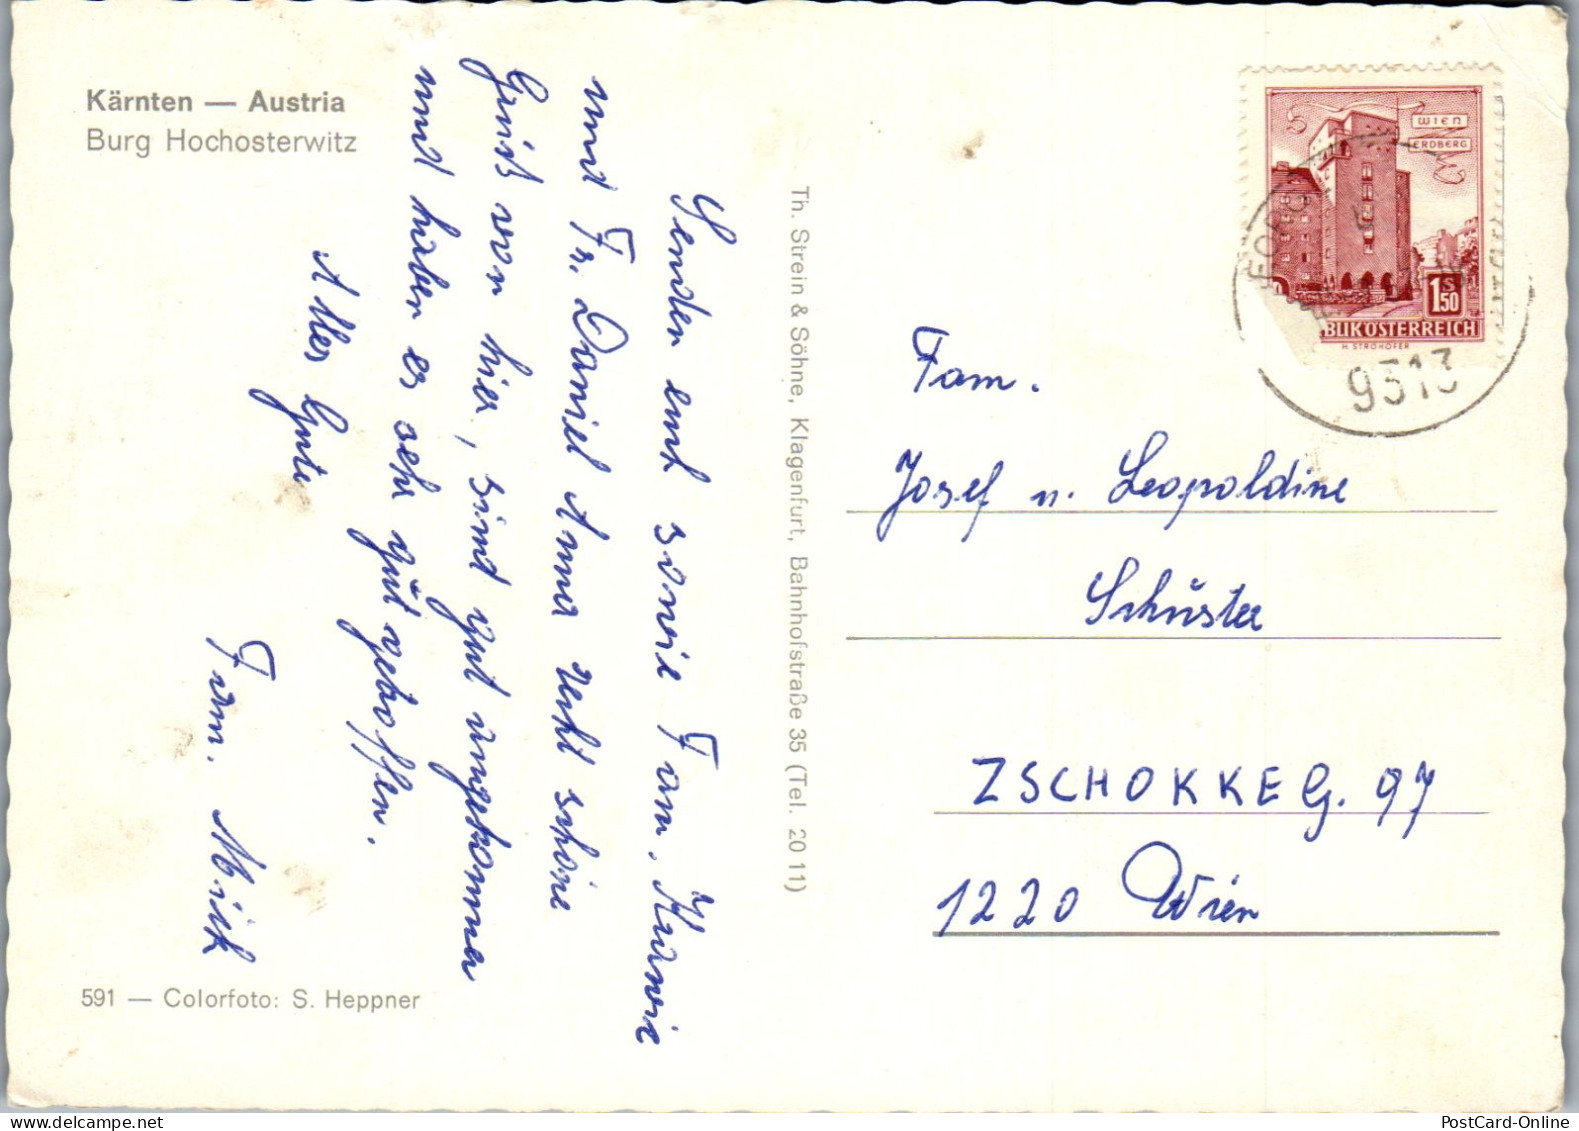 Kärnten — Austria
Burg Hochosterwitz
Senden euch sowie Fam. Kurwie
und Fr. Daniel Anna recht schöne
Grüß von hier, sind gut angekommen
und haben es sehr gut getroffen.
Alles Gute
Fam.
591 — Colorfoto: S. Heppner
Th. Strein & Söhne, Klagenfurt, Bahnhofstraße 35 (Tel. 20 11)
WIEN
ERDBERG
1S50
BLIK ÖSTERREICH
H. STROHOFER
9313
Fam.
Josef u. Leopoldine
Schuster
ZSCHOKKEG. 97
1220 Wien
PostCard-Online
www.delcampe.net